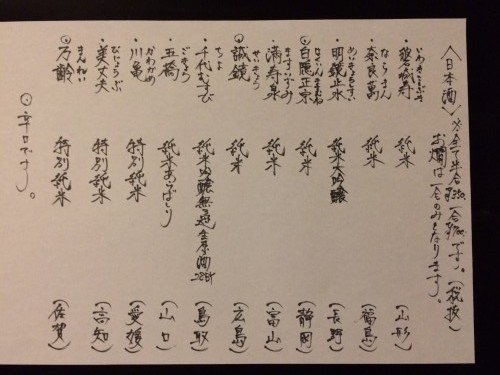 〈日本酒〉※全て半合 一合 です。(税抜)
お燗は一合のみとなります。
いわきことぶき
・磐城壽 純米 (山形)
ならまん
・奈良萬 純米 (福島)
めいきょうしすい
・明鏡止水 純米大吟醸 (長野)
はくいんまさむね
◎白隠正宗 純米 (静岡)
ますいずみ
・満寿泉 純米 (富山)
せいきょう
◎誠鏡 純米 (広島)
ちよ
・千代むすび 純米吟醸無過生原酒 (鳥取)
ごきょう
・五橋 純米あらばしり (山口)
かわかめ
・川亀 特別純米 (愛媛)
びじょうふ
・美丈夫 特別純米 (高知)
まんれい
◎万齢 特別純米 (佐賀)
◎辛口です。